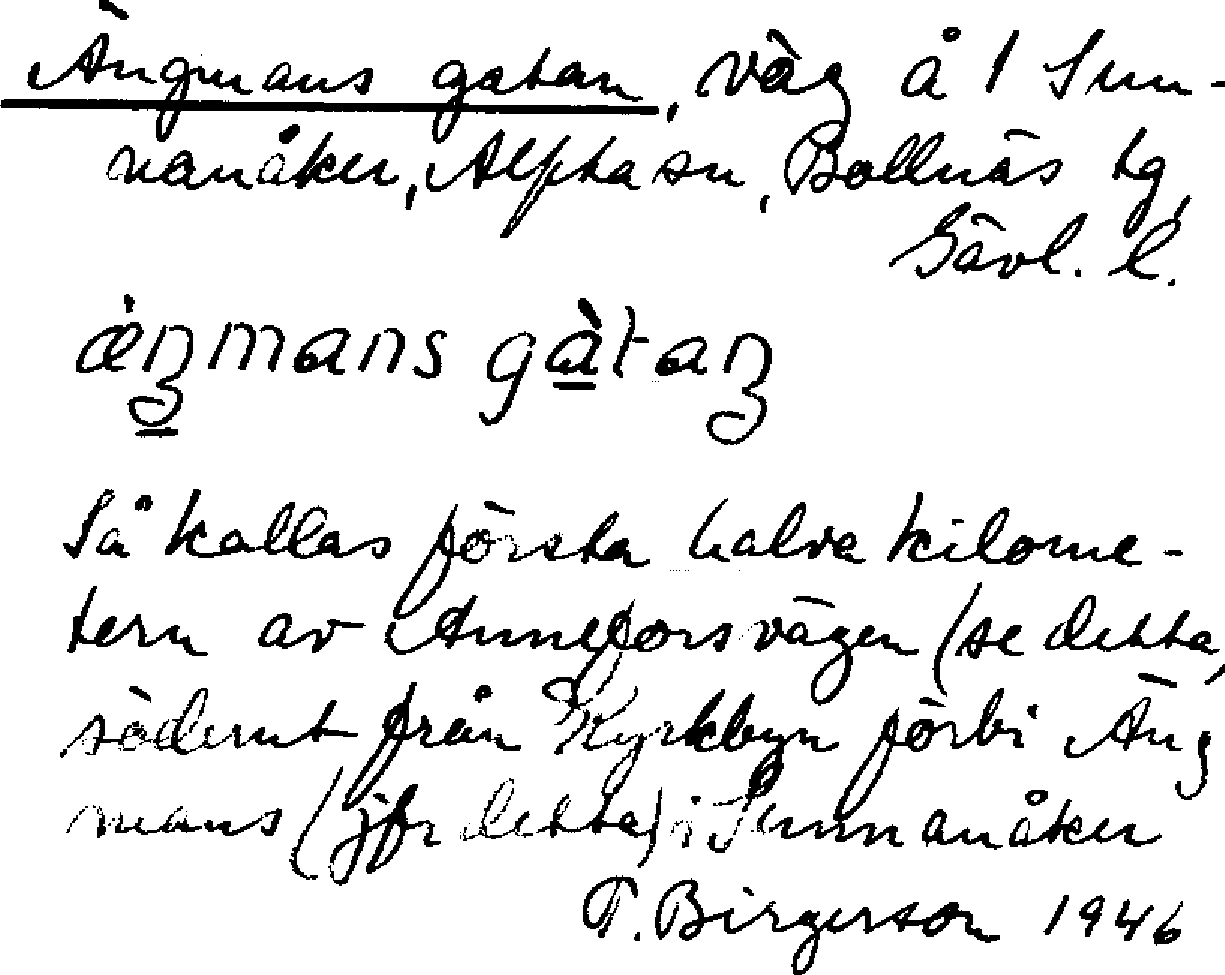 Ängmans gatan, väg å 1 Sun-
nanåker, Alfta sn, Bollnäs tg,
Gävl. l.
Så kallas första halva kilome-
tern av Anneforsvägen (se detta,
söderut från Kyrkbyn förbi Äng
mans (jfr detta) i Sunnanåker
T. Birgerson 1946